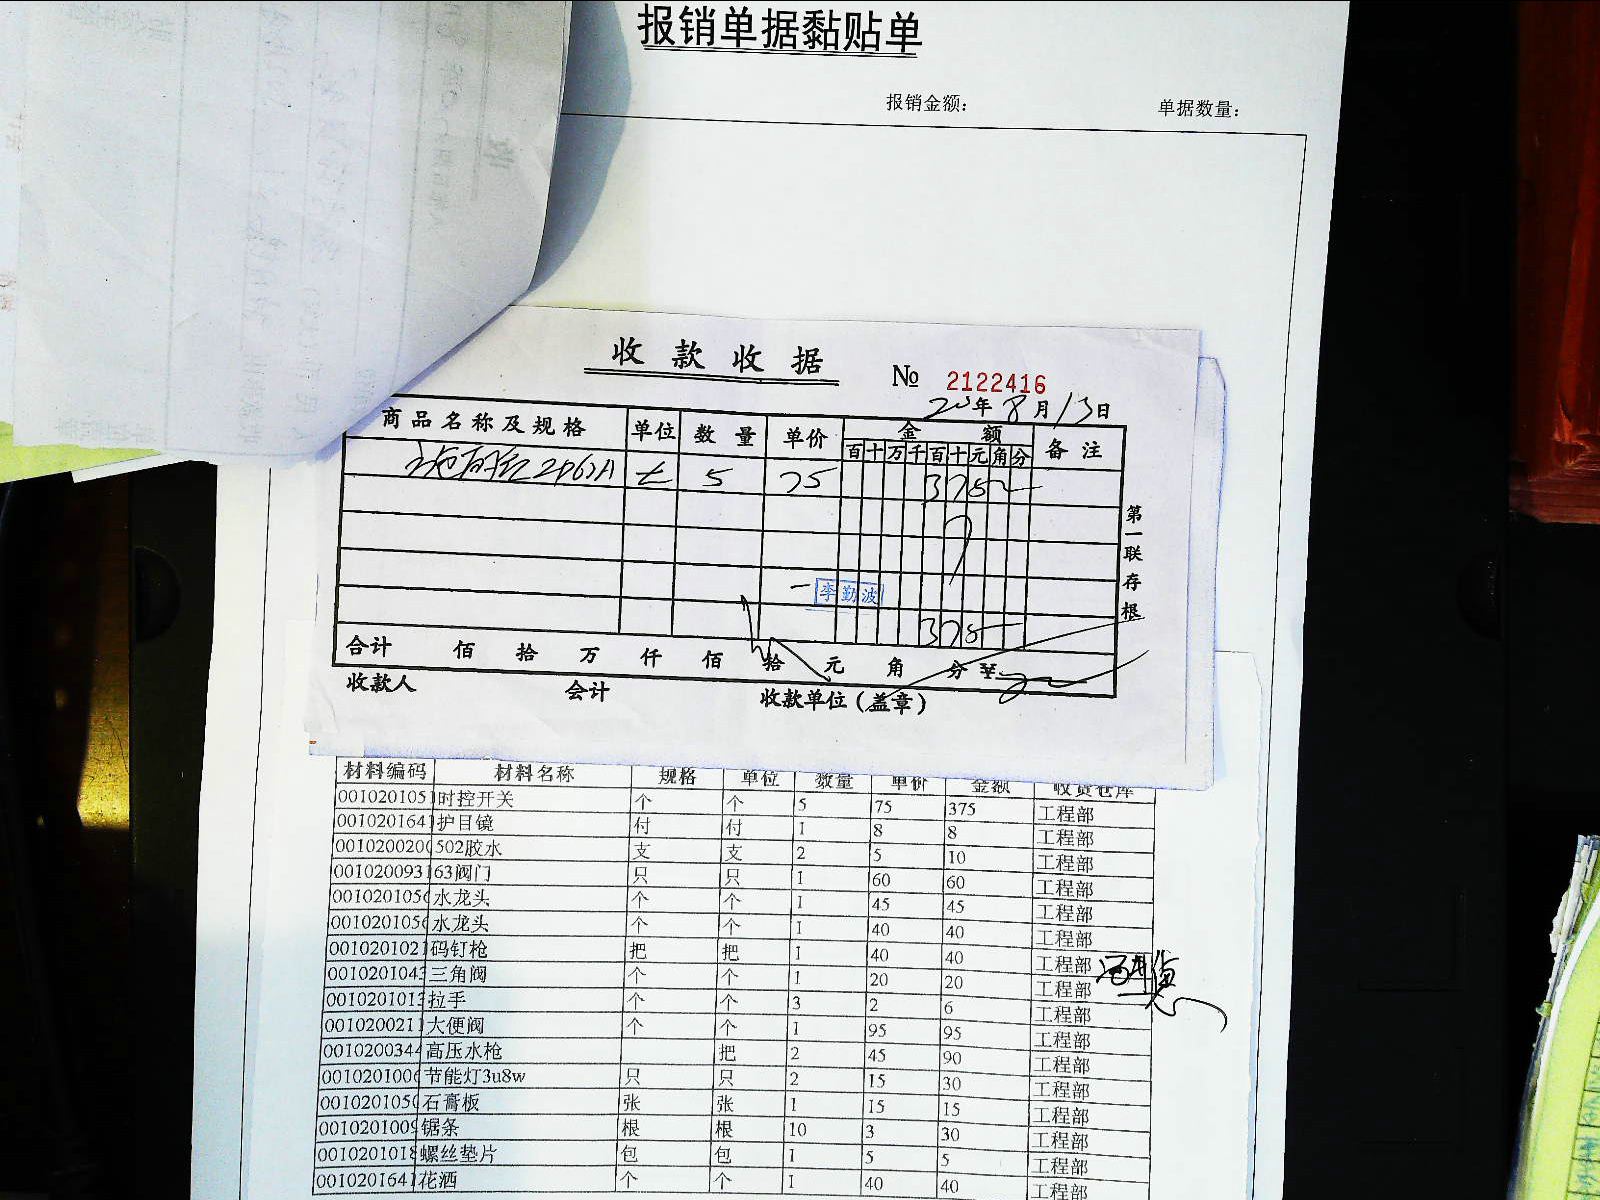 报销单据黏贴单
报销金额： 单据数量：
收款收据
№ 2122416
年 8 月 13 日
商品名称及规格 单位 数量 单价 金额 备注
百 十 万 千 百 十 元 角 分
5 75 375
李勤波
375
合计 佰 拾 万 仟 佰 拾 元 角 分
收款人 会计 收款单位（盖章）
第一联存根
材料编码 材料名称 规格 单位 数量 单价 金额 收货仓库
001020105 时控开关 个 个 5 75 375 工程部
0010201641 护目镜 付 付 1 8 8 工程部
0010200200 502胶水 支 支 2 5 10 工程部
0010200931 63阀门 只 只 1 60 60 工程部
001020105 水龙头 个 个 1 45 45 工程部
001020105 水龙头 个 个 1 40 40 工程部
0010201021 码钉枪 把 把 1 40 40 工程部
001020104 三角阀 个 个 1 20 20 工程部
001020101 拉手 个 个 3 2 6 工程部
001020021 大便阀 个 个 1 95 95 工程部
0010200344 高压水枪 把 2 45 90 工程部
001020100 节能灯3u8w 只 只 2 15 30 工程部
001020105 石膏板 张 张 1 15 15 工程部
001020100 锯条 根 根 10 3 30 工程部
001020101 螺丝垫片 包 包 1 5 5 工程部
0010201641 花洒 个 个 1 40 40 工程部